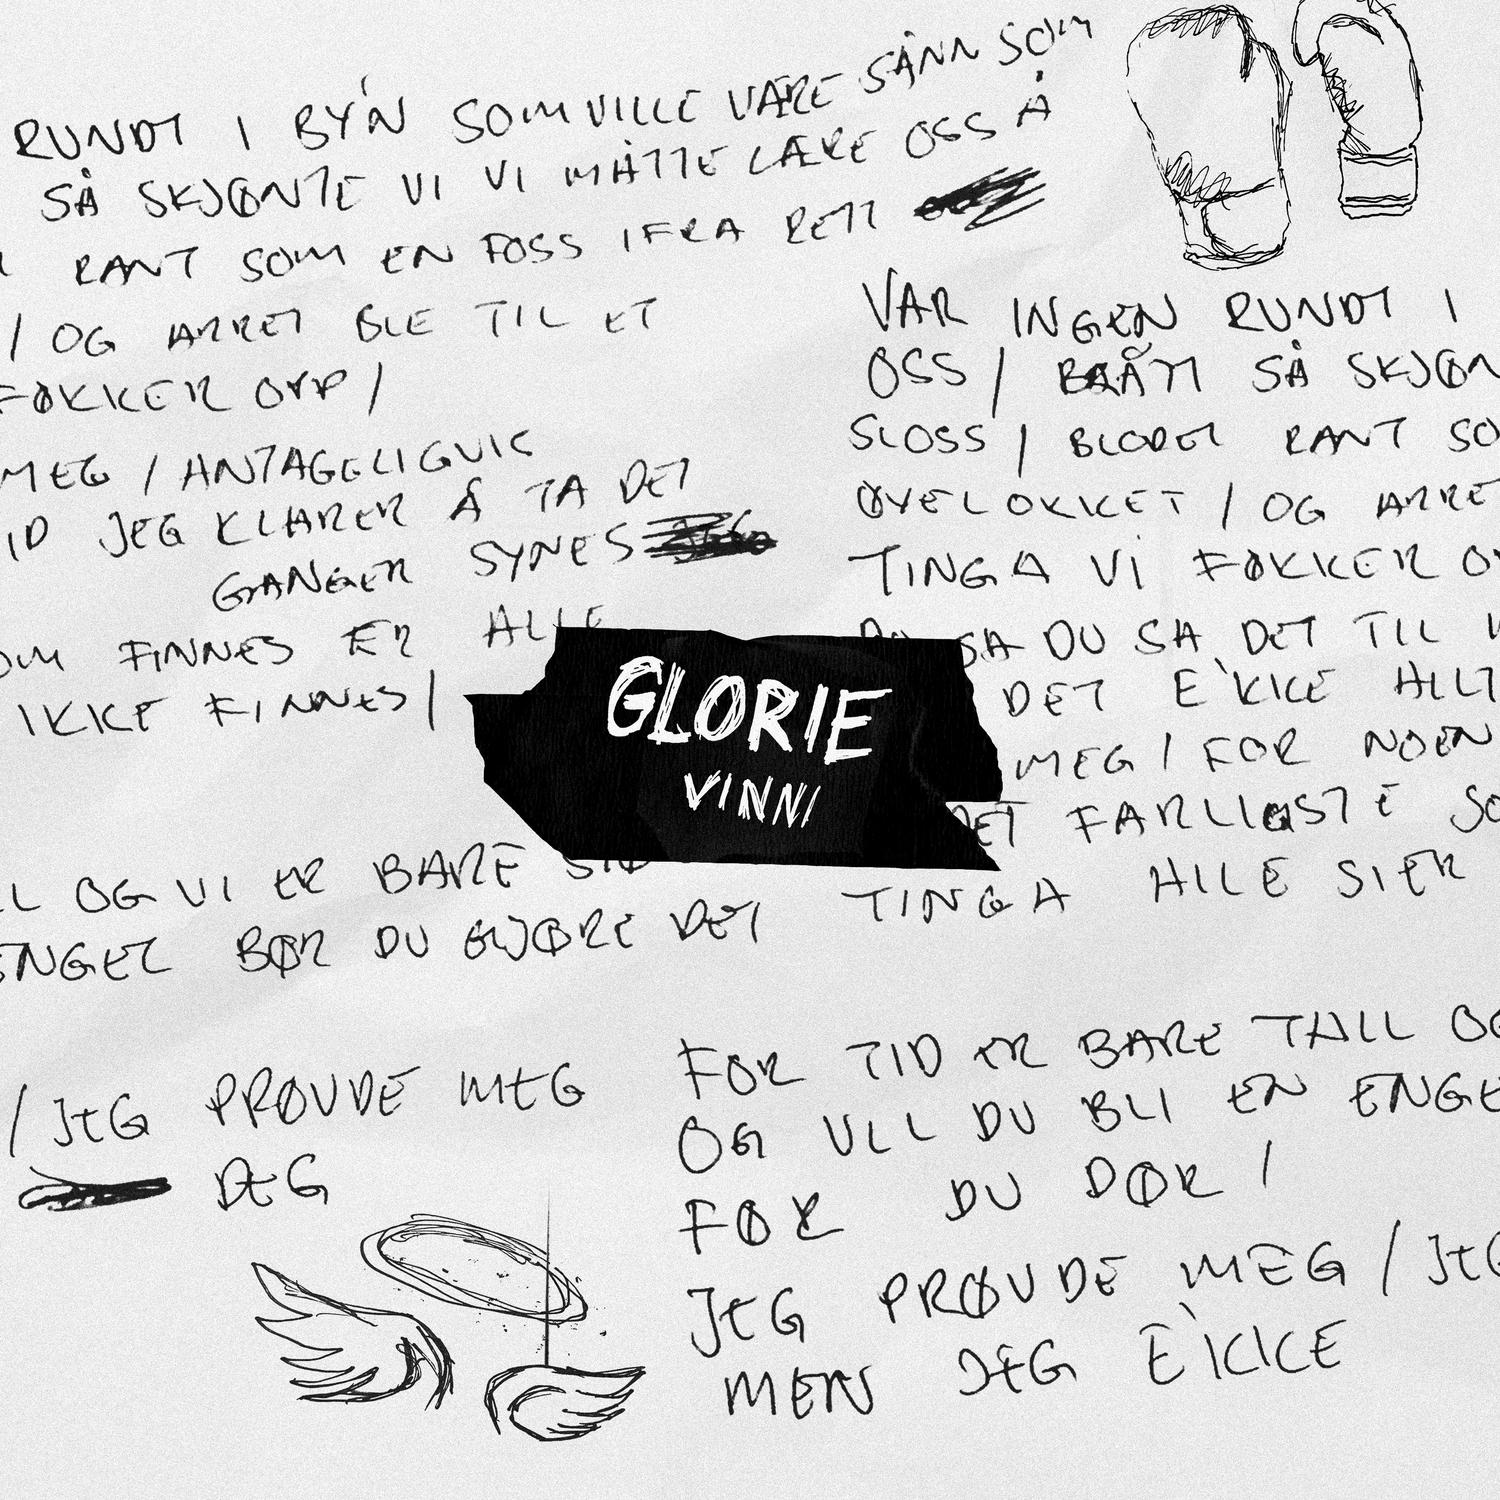 RUNDT I BY'N SOM VILLE VÆRE SÅNN SOM
SÅ SKJØNTE VI VI MÅTTE LÆRE OSS Å
RANT SOM EN FOSS IFRA RETT
/ OG ARRET BLE TIL ET
FØKKER OPP /
MEG / ANTAGELIGVIS
ID JEG KLARER Å TA DET
GANGER SYNES
OM FINNES ER ALLE
IKKE FINNES /
LL OG VI ER BARE
ENGEL BØR DU GJØRE DET
/ JEG PRØVDE MEG
DEG
VAR INGEN RUNDT I
OSS / BRÅTT SÅ SKJØN
SLOSS / BLODET RANT SO
ØYELOKKET / OG ARRET
TINGA VI FØKKER OP
SA DU SA DET TIL
DET E'KKE ALLT
MEG / FOR NOEN
DET FARLIGSTE SO
TINGA ALLE SIER
GLORIE
VINNI
FOR TID ER BARE TALL OG
OG VILL DU BLI EN ENGE
FØR DU DØR /
JEG PRØVDE MEG / JEG
MEN JEG E'KKE